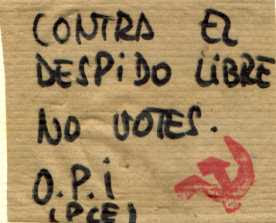 CONTRA EL
DESPiDO LiBRE
NO VOTES.
O.P.i
(PCE)